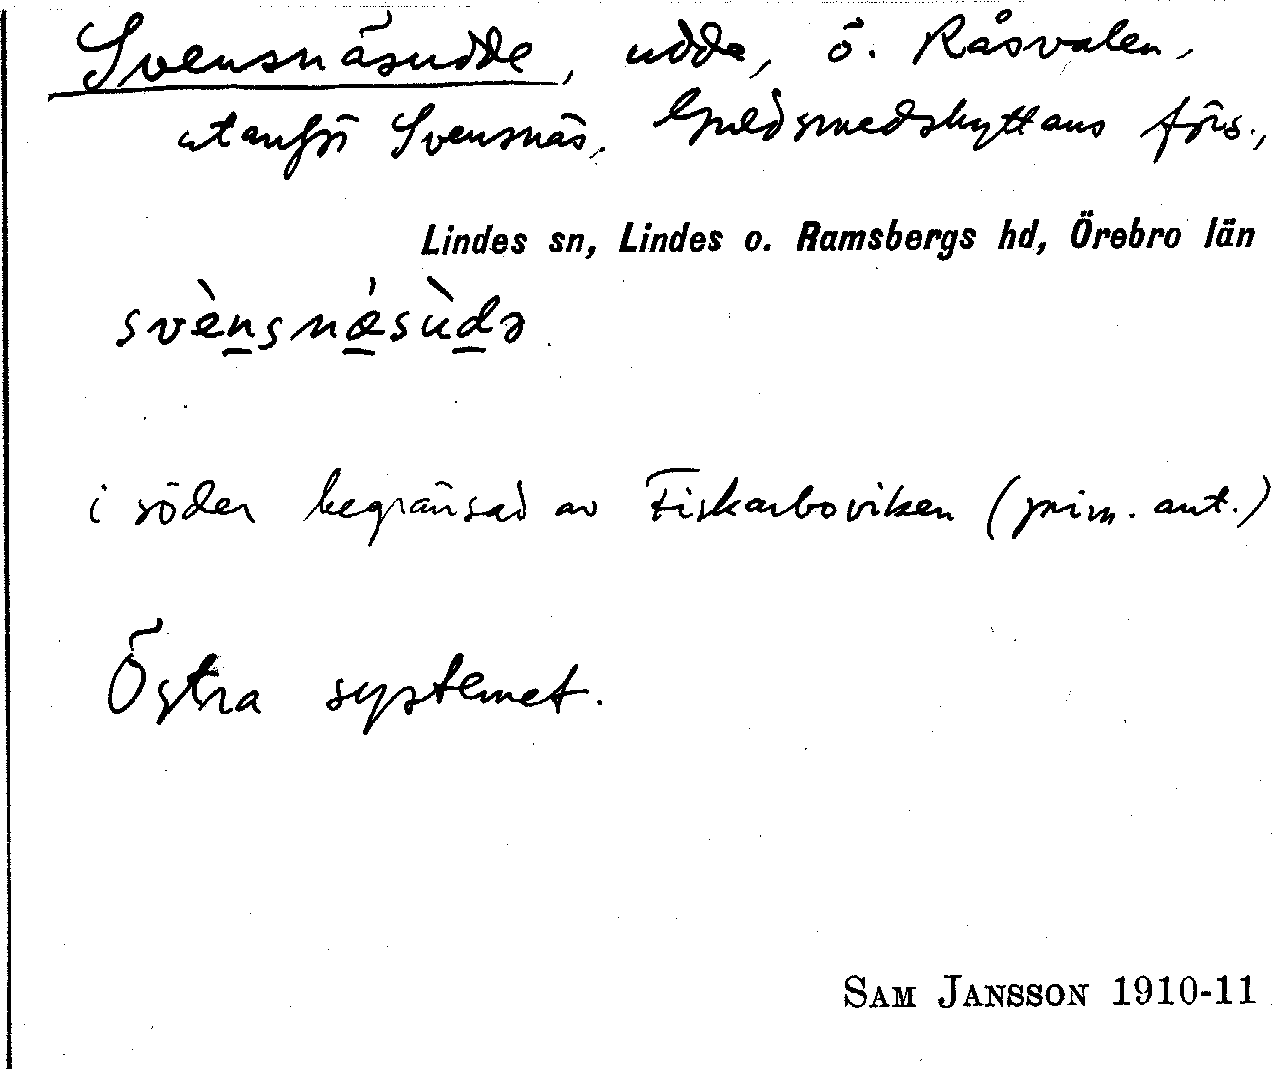 Svensnäsudde, udde, ö. Råsvalen,
utanför Svensnäs, Guldsmedshyttans förs.,
Lindes sn, Lindes o. Ramsbergs hd, Örebro län
svèn̲snǽ̲sùd̲ə
i söder begränsad av Fiskarboviken (prim. ant.)
Östra systemet.
SAM JANSSON 1910-11